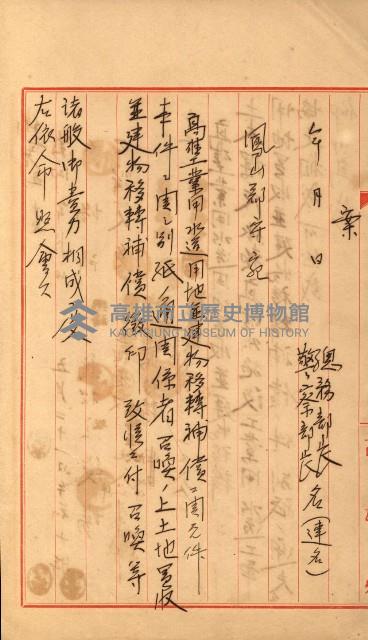 案
年 月 日
總務部長
警察部長 名(連名)
鳳山郡守宛
高雄工業用水道用地並建物移轉補償ニ関スル件
本件ニ関シ別紙ノ通関係者召喚ノ上土地買收
並建物移轉補償 致度ニ付召喚等
諸般御盡力相成度
右依命照會ス
高雄市立歷史博物館
KAOHSIUNG MUSEUM OF HISTORY